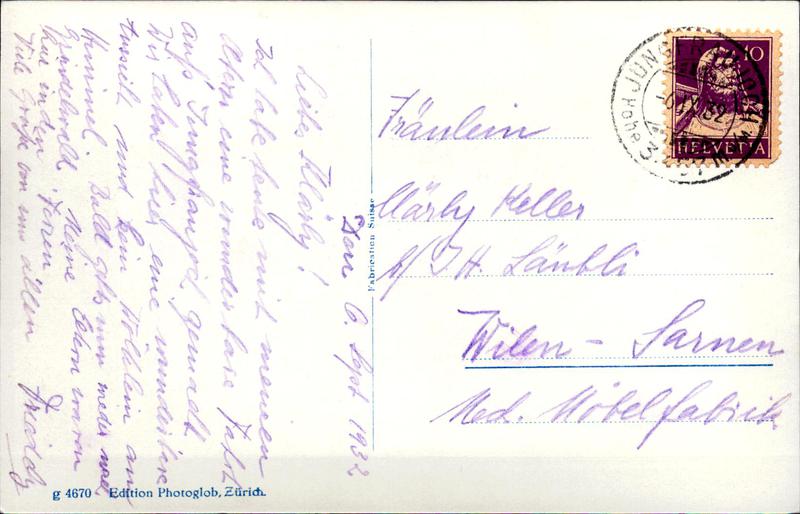 Bern 6. Sept 1932
Liebe Klärly!
Ich habe heute mit meinen
Eltern eine wunderbare Fahrt
aufs Jungfraujoch gemacht
Wir haben hier eine wunderbare
Aussicht und kein Wölklein am
Himmel. Bald gehts nun wieder nach
Grindelwald. Meine Eltern waren
hier in den Ferien.
Viele Grüsse von uns allen
Friedly
Fabrication Suisse
g 4670 Edition Photoglob, Zürich.
10
HELVETIA
JUNGFRAUJOCH
32
Fräulein
Klärly Keller
b/ J. H. Läubli
Wilen - Sarnen
Mech. Möbelfabrik